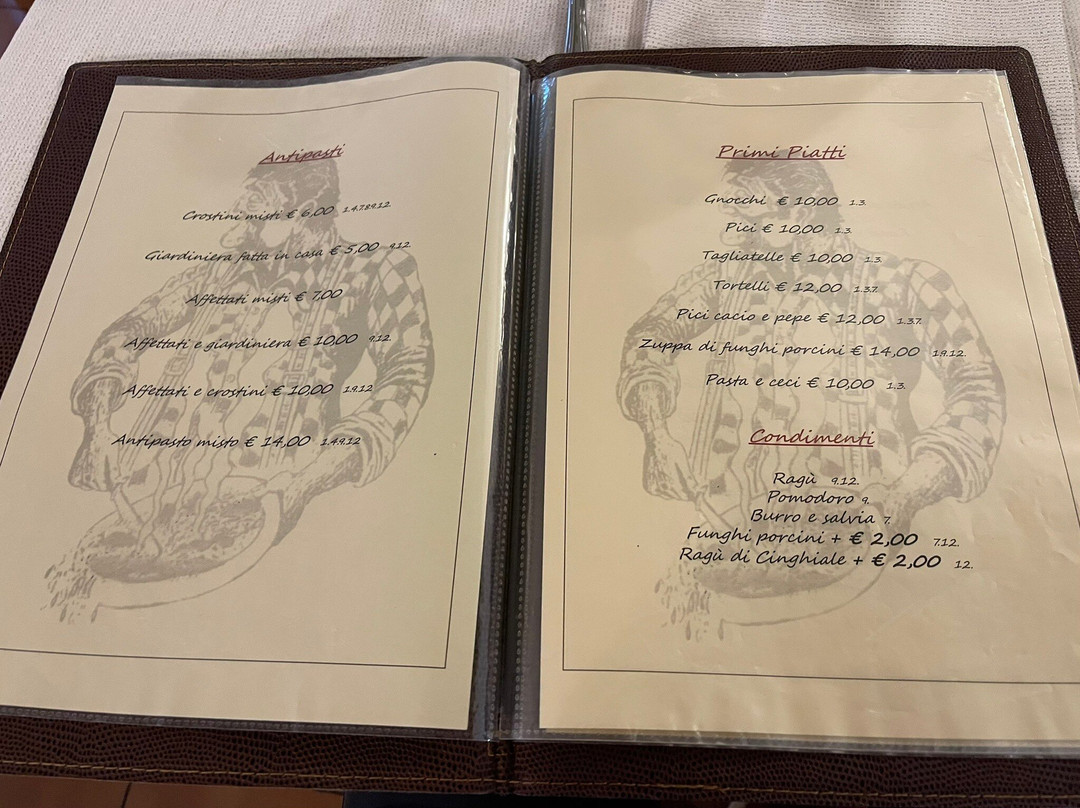 Antipasti
Crostini misti € 6,00 1.4.7.8.9.12.
Giardiniera fatta in casa € 5,00 9.12.
Affettati misti € 7,00
Affettati e giardiniera € 10,00 9.12.
Affettati e crostini € 10,00 1.9.12
Antipasto misto € 14,00 1.4.9.12
Primi Piatti
Gnocchi € 10,00 1.3.
Pici € 10,00 1.3.
Tagliatelle € 10,00 1.3.
Tortelli € 12,00 1.3.7.
Pici cacio e pepe € 12,00 1.3.7.
Zuppa di funghi porcini € 14,00 1.9.12.
Pasta e ceci € 10,00 1.3.
Condimenti
Ragù 9.12.
Pomodoro 9.
Burro e salvia 7.
Funghi porcini + € 2,00 7.12.
Ragù di Cinghiale + € 2,00 12.